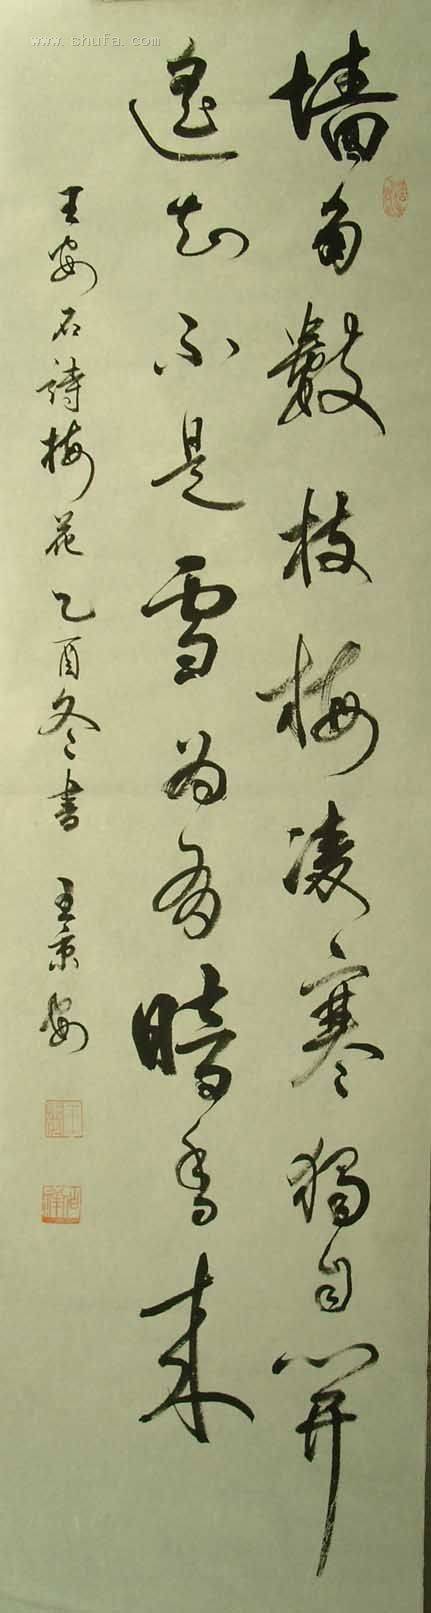 www.shufa.com
墙角數枝梅凌寒獨自開
遥知不是雪为有暗香来
王安石詩梅花乙酉冬書 王京安